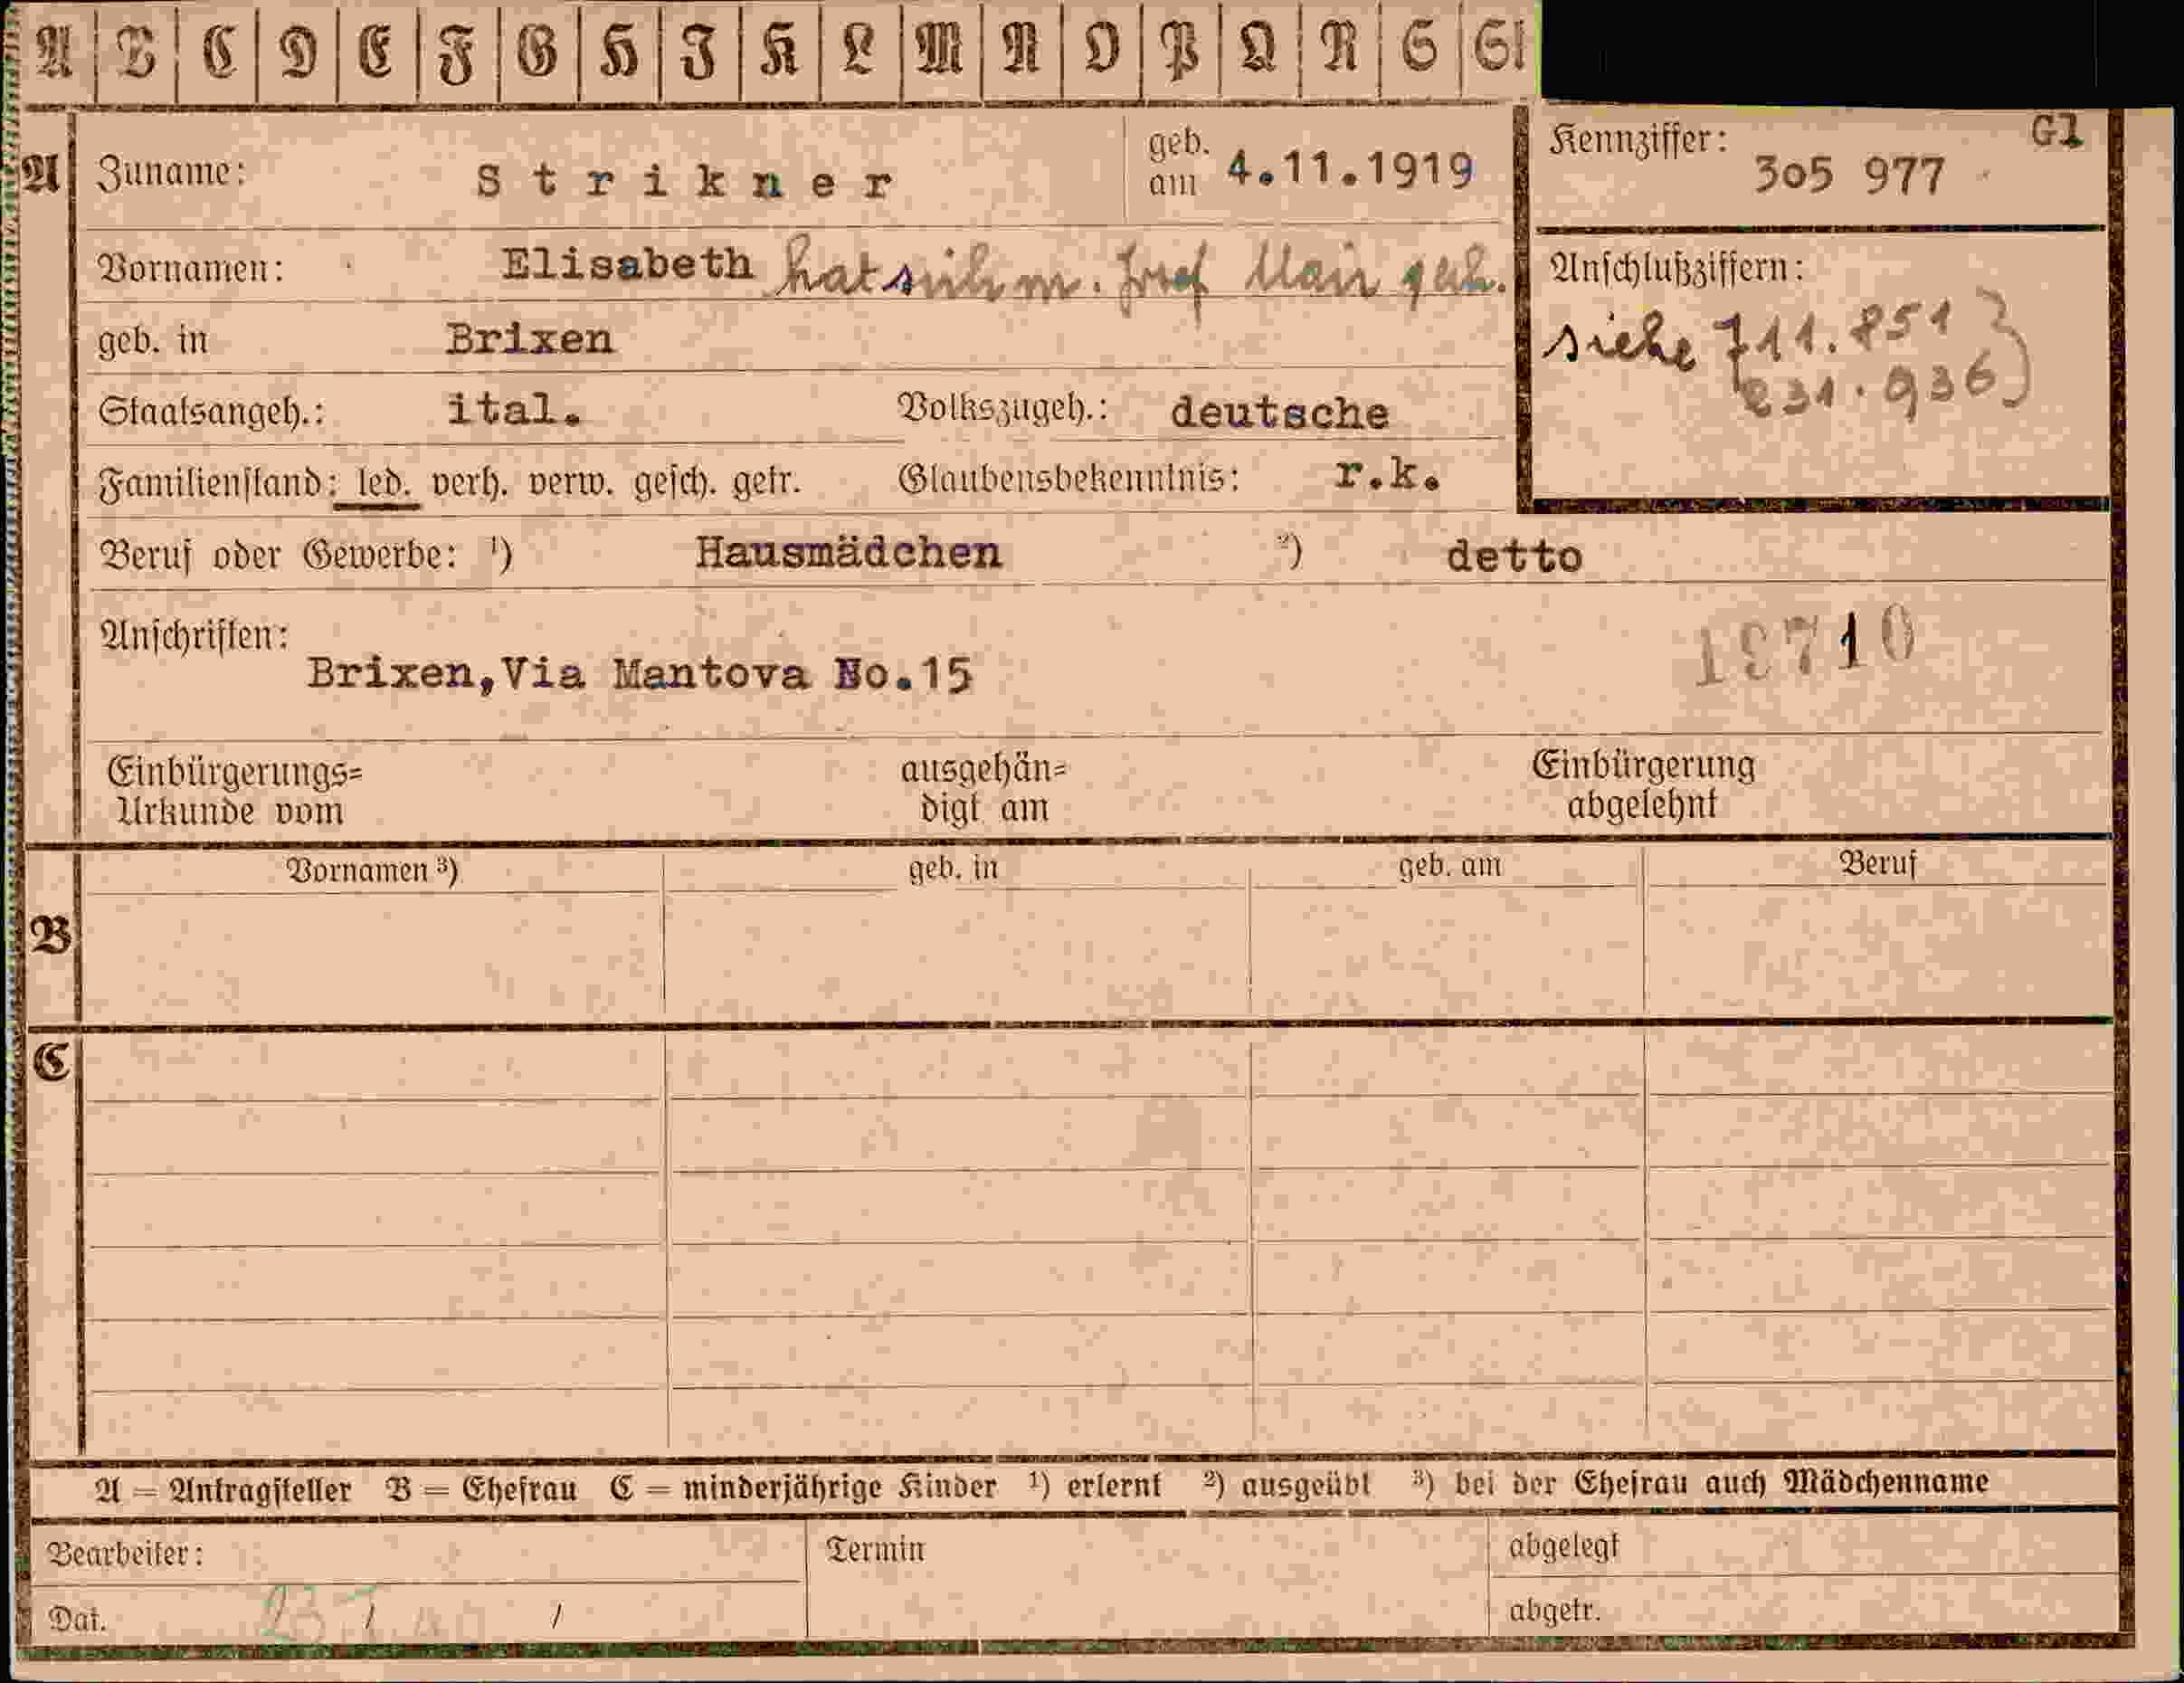 A B C D E F G H I K L M N O P Q R S St
A Zuname: Strikner geb. am 4.11.1919 Kennziffer: 305 977 Gl
Vornamen: Elisabeth hat sich m. Josef Mair geh. Anschlußziffern:
siehe 711.851
231.936
geb. in Brixen
Staatsangeh.: ital. Volkszugeh.: deutsche
Familienstand: led. verh. verw. gesch. getr. Glaubensbekenntnis: r.k.
Beruf oder Gewerbe: ¹) Hausmädchen ²) detto
Anschriften:
Brixen,Via Mantova No.15
19710
Einbürgerungs= ausgehän= Einbürgerung
Urkunde vom digt am abgelehnt
Vornamen ³) geb. in geb. am Beruf
B
C
A = Antragsteller B = Ehefrau C = minderjährige Kinder ¹) erlernt ²) ausgeübt ³) bei der Ehefrau auch Mädchenname
Bearbeiter: Termin abgelegt
Dat. 23 I 40 abgetr.